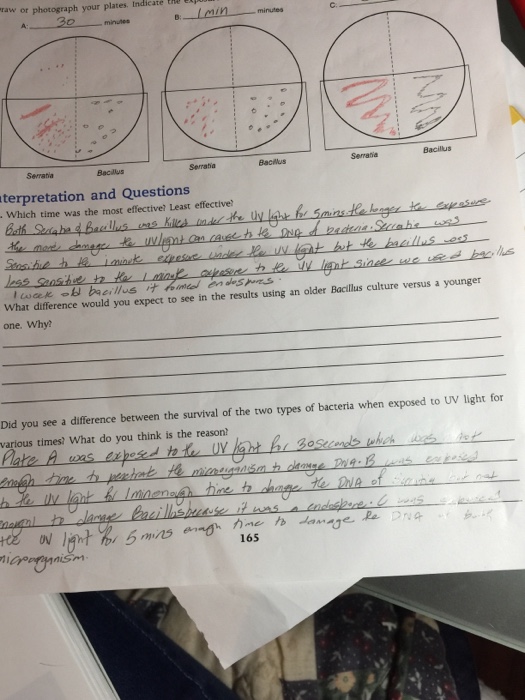 raw or photograph your plates. Indicate the
A: 30 minutes
B. 1 min minutes
C.
Serratia Bacillus
Serratia Bacillus
Serratia Bacillus
terpretation and Questions
. Which time was the most effective? Least effective?
Both & Bacillus was killed under the UV light for 5 mins the longer the exposure
the more damage the UV light can cause to the DNA of bacteria. was
Sensitive to the 1 minute exposure under the UV light but the bacillus was
less sensitive to the 1 minute exposure to the UV light since we used bacillus
1 week old bacillus it formed endospores.
What difference would you expect to see in the results using an older Bacillus culture versus a younger
one. Why?
Did you see a difference between the survival of the two types of bacteria when exposed to UV light for
various times? What do you think is the reason?
Plate A was exposed to the UV light for 30 seconds which was not
enough time to the microorganism to damage DNA. B was exposed
to the UV light for 1 time to the DNA of not
to damage because it was a endospore. C was exposed
UV light for 5 mins time to damage the DNA
microorganism.
165